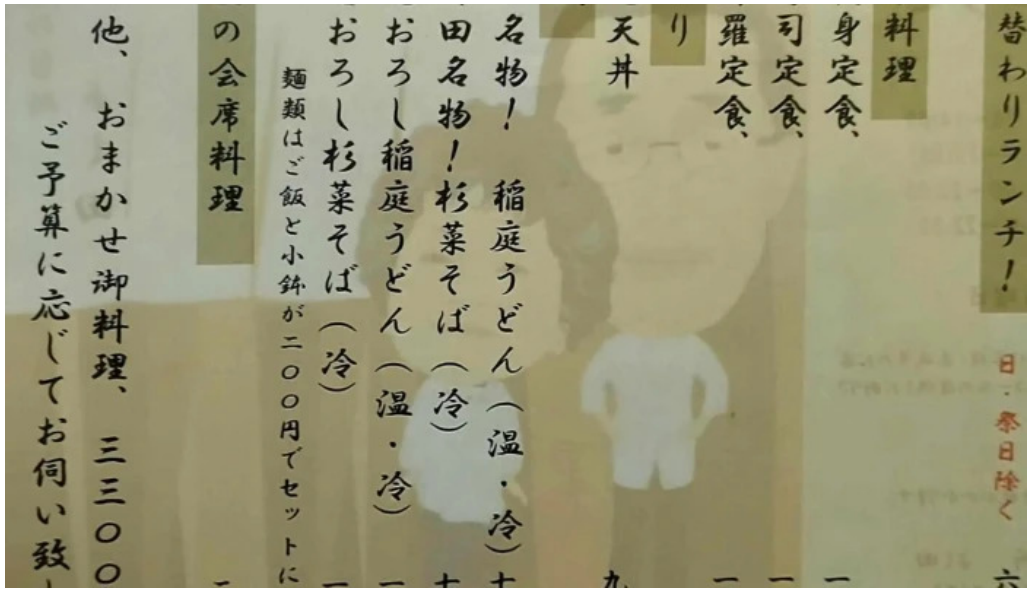 替わりランチ！ 日・祭日除く 六
料理
身定食、 一
司定食、 一
羅定食、 一
り
天丼 九
名物！ 稲庭うどん（温・冷） 十
田名物！杉菜そば（冷） 十
おろし稲庭うどん（温・冷） 一
おろし杉菜そば（冷） 一
麺類はご飯と小鉢が二〇〇円でセットに
の会席料理
他、 おまかせ御料理、 三三〇〇
ご予算に応じてお伺い致し